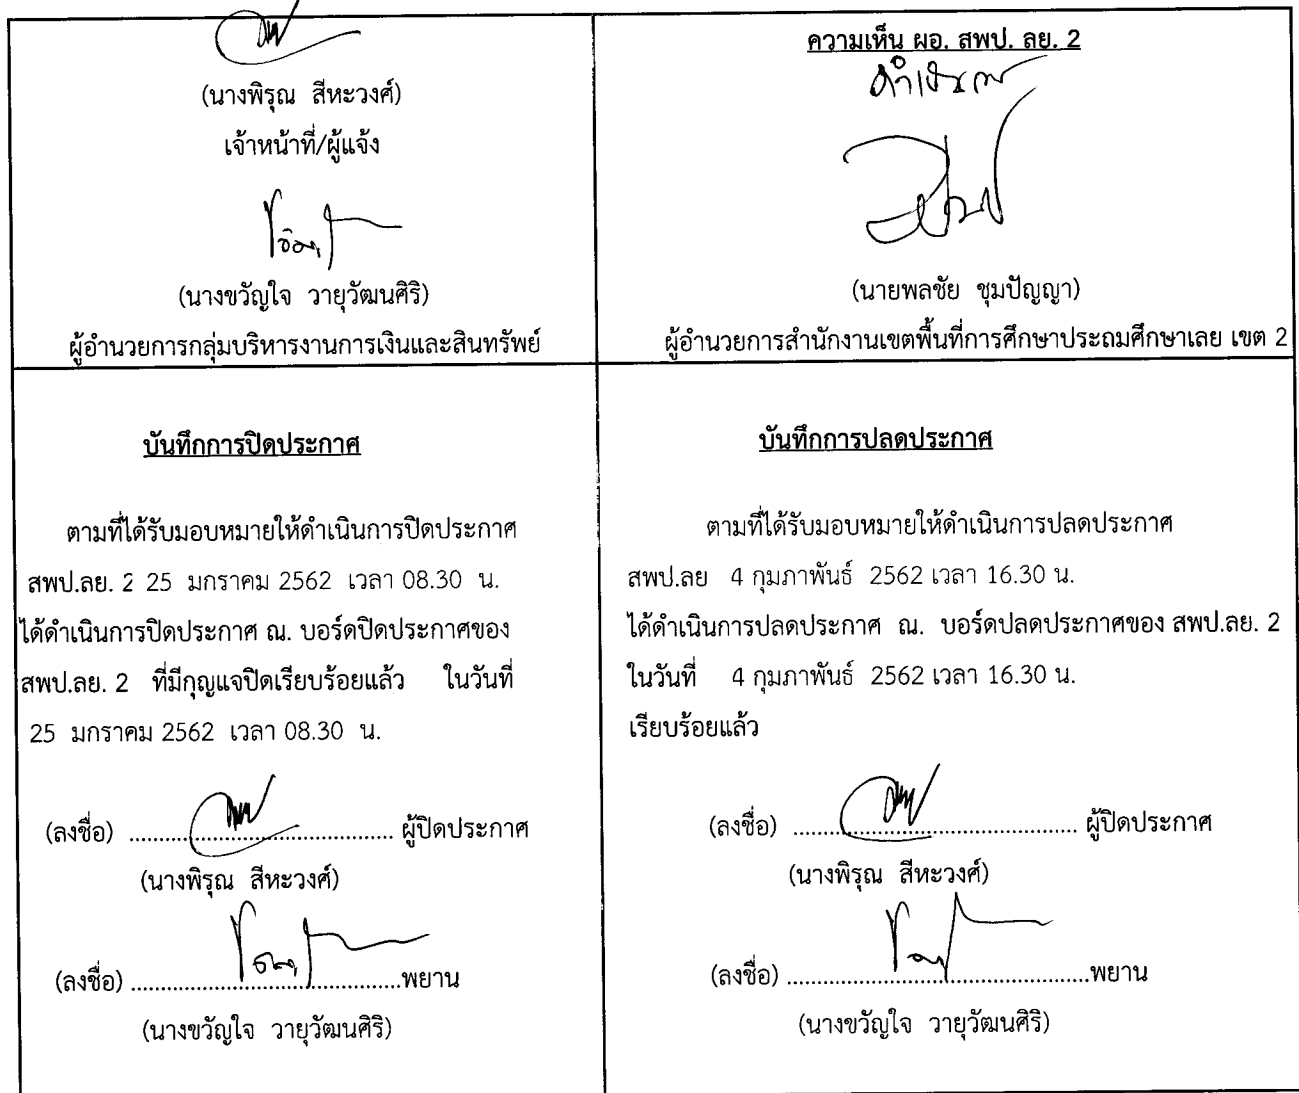 (นางพิรุณ สีหะวงศ์)
เจ้าหน้าที่/ผู้แจ้ง
(นางขวัญใจ วายุวัฒนศิริ)
ผู้อำนวยการกลุ่มบริหารงานการเงินและสินทรัพย์
ความเห็น ผอ. สพป. ลย. 2
(นายพลชัย ชุมปัญญา)
ผู้อำนวยการสำนักงานเขตพื้นที่การศึกษาประถมศึกษาเลย เขต 2
บันทึกการปิดประกาศ
ตามที่ได้รับมอบหมายให้ดำเนินการปิดประกาศ
สพป.ลย. 2 25 มกราคม 2562 เวลา 08.30 น.
ได้ดำเนินการปิดประกาศ ณ. บอร์ดปิดประกาศของ
สพป.ลย. 2 ที่มีกุญแจปิดเรียบร้อยแล้ว ในวันที่
25 มกราคม 2562 เวลา 08.30 น.
(ลงชื่อ) ........................................ ผู้ปิดประกาศ
(นางพิรุณ สีหะวงศ์)
(ลงชื่อ) ........................................พยาน
(นางขวัญใจ วายุวัฒนศิริ)
บันทึกการปลดประกาศ
ตามที่ได้รับมอบหมายให้ดำเนินการปลดประกาศ
สพป.ลย 4 กุมภาพันธ์ 2562 เวลา 16.30 น.
ได้ดำเนินการปลดประกาศ ณ. บอร์ดปลดประกาศของ สพป.ลย. 2
ในวันที่ 4 กุมภาพันธ์ 2562 เวลา 16.30 น.
เรียบร้อยแล้ว
(ลงชื่อ) ........................................ ผู้ปิดประกาศ
(นางพิรุณ สีหะวงศ์)
(ลงชื่อ) ........................................พยาน
(นางขวัญใจ วายุวัฒนศิริ)